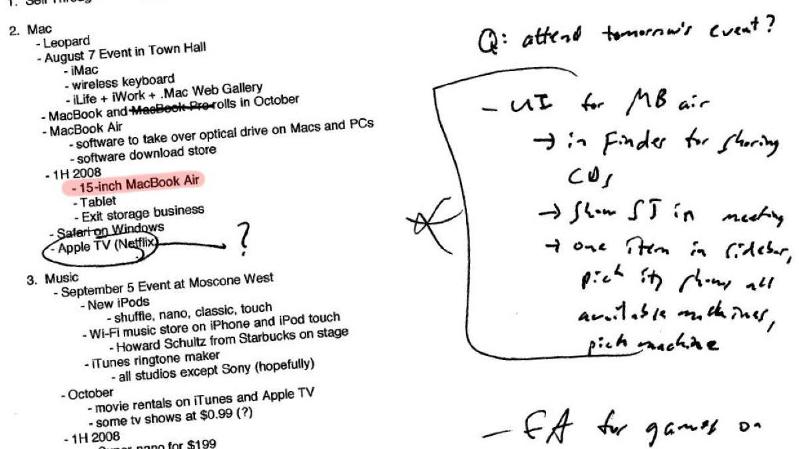 1. Self Through
2. Mac
- Leopard
- August 7 Event in Town Hall
- iMac
- wireless keyboard
- iLife + iWork + .Mac Web Gallery
- MacBook and MacBook Pro rolls in October
- MacBook Air
- software to take over optical drive on Macs and PCs
- software download store
- 1H 2008
- 15-inch MacBook Air
- Tablet
- Exit storage business
- Safari on Windows
- Apple TV (Netflix) ?
3. Music
- September 5 Event at Moscone West
- New iPods
- shuffle, nano, classic, touch
- Wi-Fi music store on iPhone and iPod touch
- Howard Schultz from Starbucks on stage
- iTunes ringtone maker
- all studios except Sony (hopefully)
- October
- movie rentals on iTunes and Apple TV
- some tv shows at $0.99 (?)
- 1H 2008
nano for $199
Q: attend tomorrow's event?
- UI for MB air
→ in Finder for sharing
CDs
→ show SJ in meeting
→ one item in sidebar,
pick it, shows all
available machines,
pick machine
- EA for games on